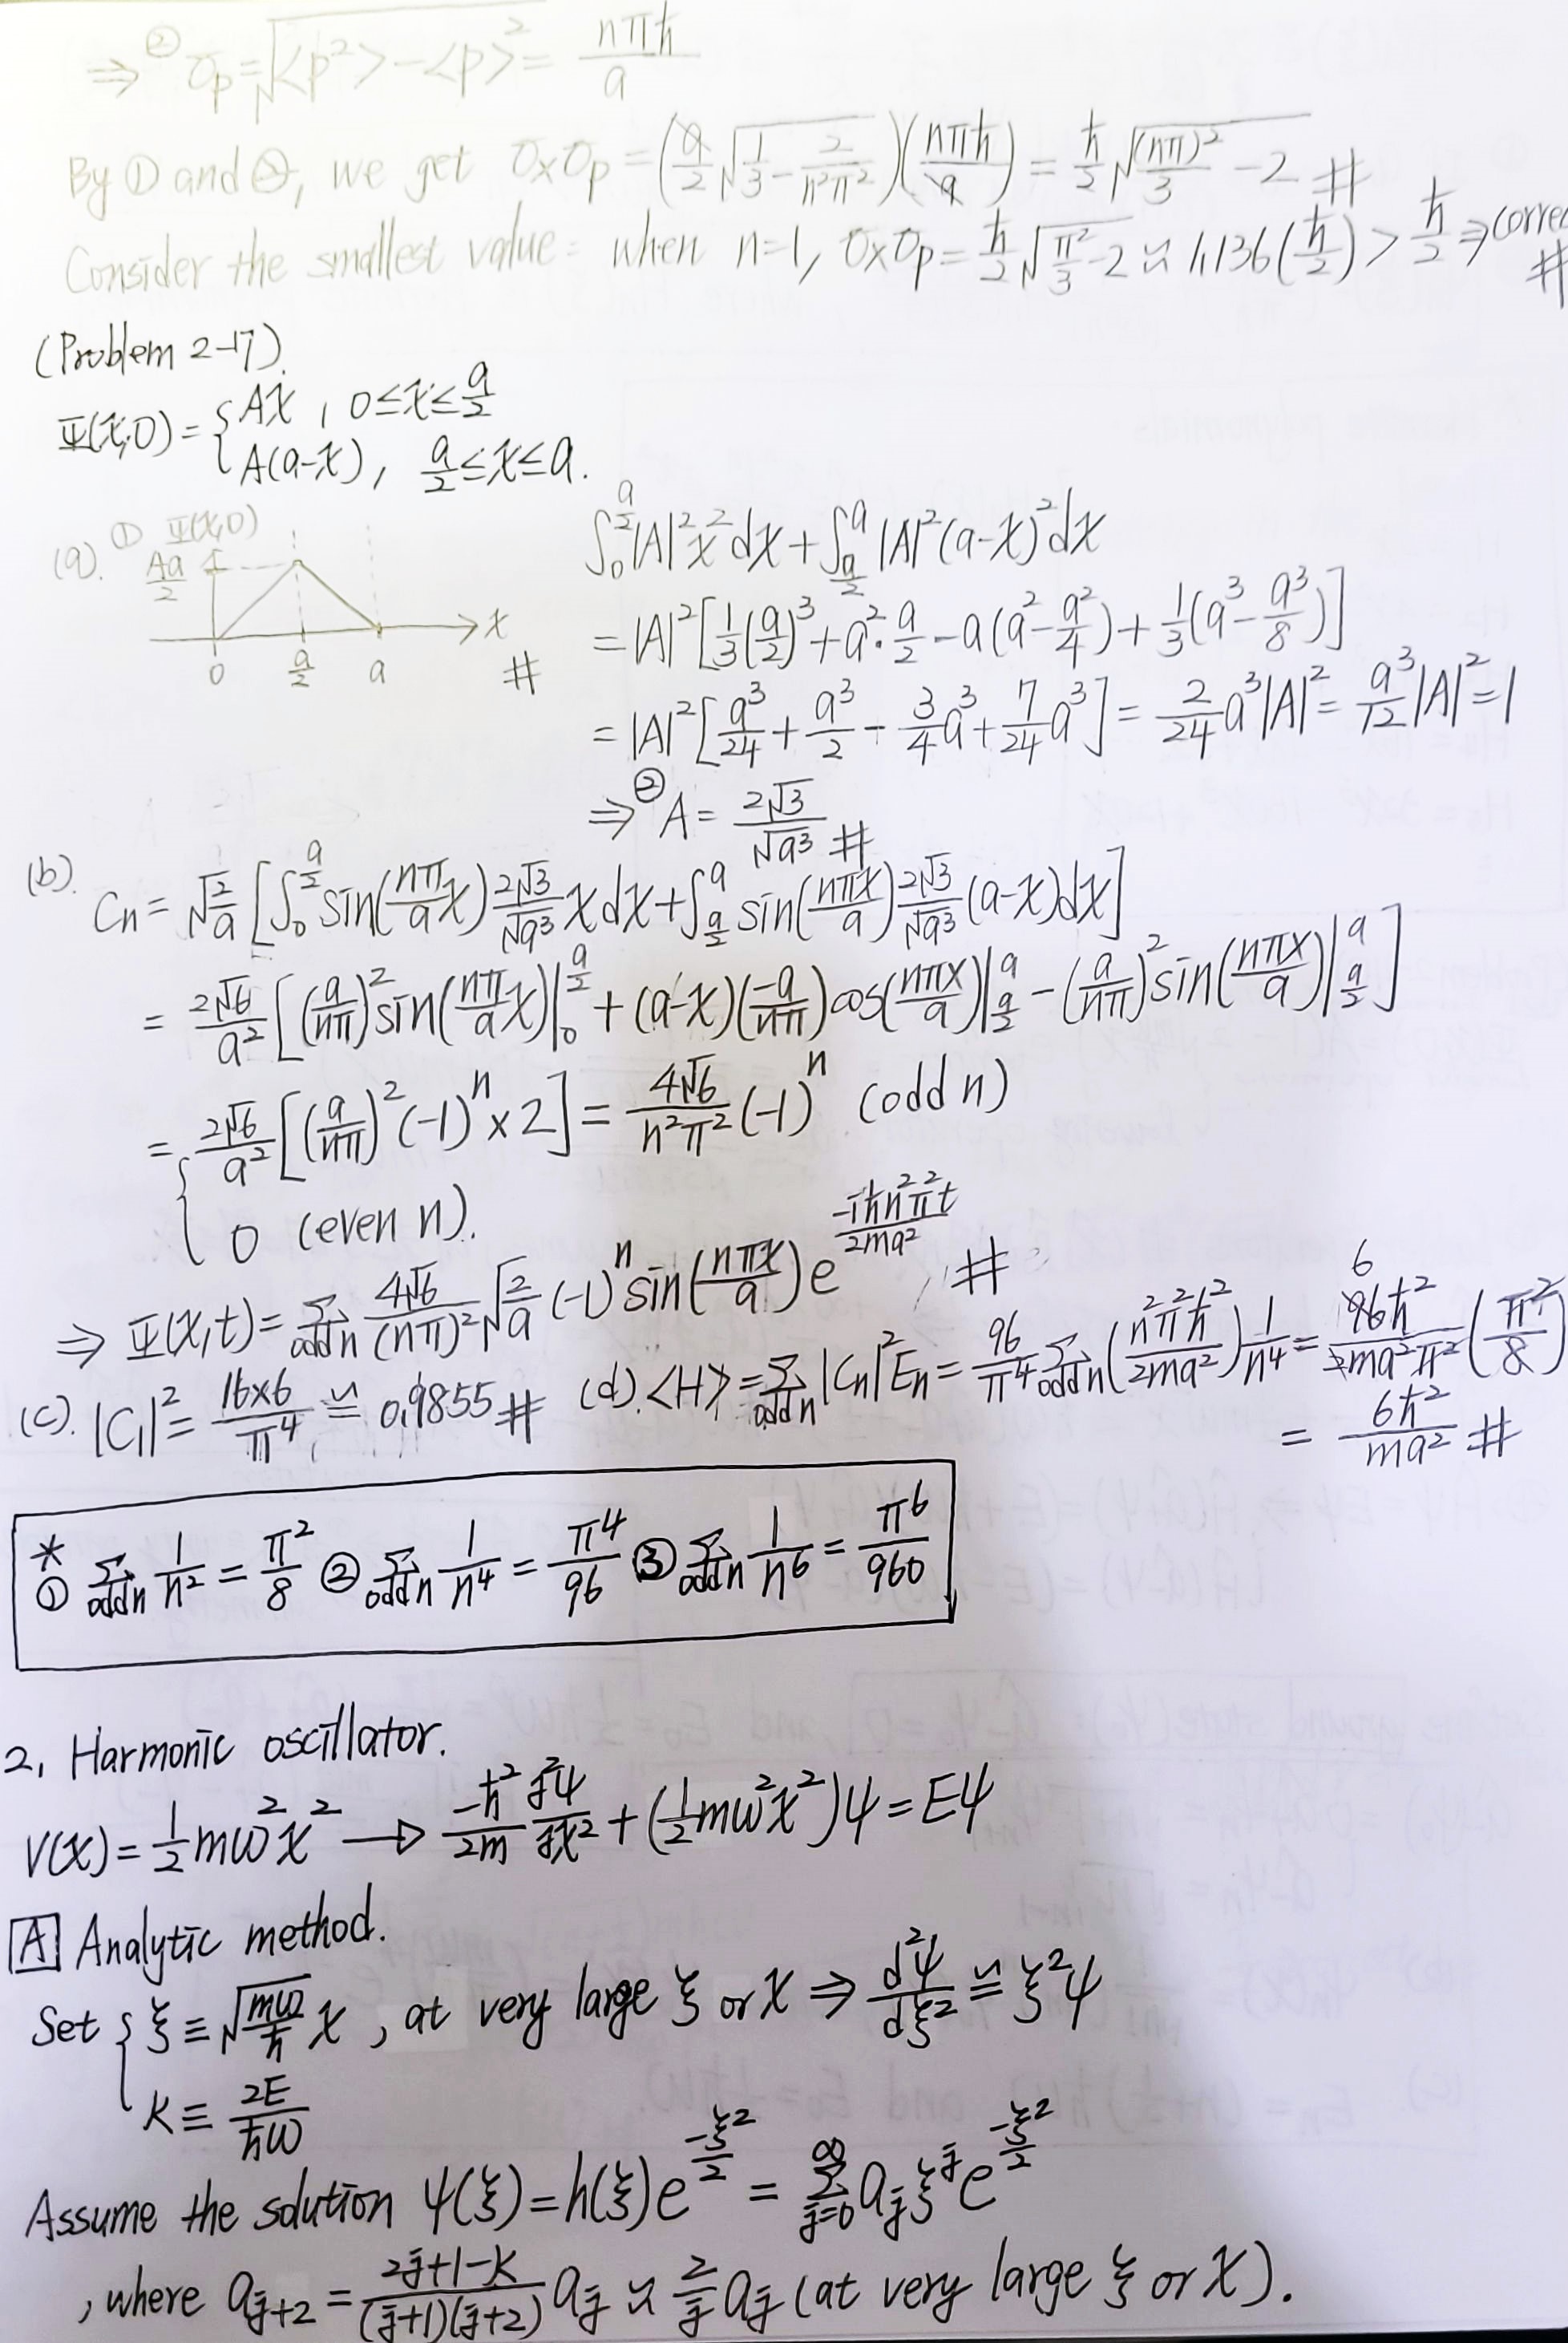 ⇒ ② σp = √(<p²> - <p>²) = nπħ/a
By ① and ②, we get σxσp = (a/2 √(1/3 - 2/(n²π²)))(nπħ/a) = ħ/2 √((nπ)²/3 - 2) #
Consider the smallest value: when n=1, σxσp = ħ/2 √(π²/3 - 2) ≈ 1.136(ħ/2) > ħ/2 ⇒ correc
#
(Problem 2-17).
Ψ(x,0) = { Ax , 0≤x≤a/2
A(a-x), a/2≤x≤a.
(a). ① Ψ(x,0)
Aa/2
x
0 a/2 a #
∫₀^(a/2) |A|²x²dx + ∫_(a/2)^a |A|²(a-x)²dx
= |A|²[1/3(a/2)³ + a²·a/2 - a(a² - a²/4) + 1/3(a³ - a³/8)]
= |A|²[a³/24 + a³/2 - 3/4 a³ + 7/24 a³] = 2/24 a³|A|² = a³/12 |A|² = 1
⇒ ② A = 2√3/√a³ #
(b). Cn = √(2/a) [∫₀^(a/2) sin(nπ/a x) 2√3/√a³ x dx + ∫_(a/2)^a sin(nπx/a) 2√3/√a³ (a-x)dx]
= 2√6/a² [(a/nπ)² sin(nπ/a x)|₀^(a/2) + (a-x)(-a/nπ)cos(nπx/a)|_(a/2)^a - (a/nπ)² sin(nπx/a)|_(a/2)^a]
= { 2√6/a² [(a/nπ)²(-1)ⁿ×2] = 4√6/(n²π²) (-1)ⁿ (odd n)
0 (even n).
⇒ Ψ(x,t) = Σ_(odd n) 4√6/(nπ)² √(2/a) (-1)ⁿ sin(nπx/a) e^(-iħn²π²t/2ma²) #
(c). |C₁|² = 16×6/π⁴ ≅ 0.9855 #
(d). <H> = Σ_(odd n) |Cn|²En = 96/π⁴ Σ_(odd n) (n²π²ħ²/2ma²) 1/n⁴ = 6 96ħ²/(2ma²π²) (π²/8)
= 6ħ²/ma² #
* ① Σ_(odd n) 1/n² = π²/8 ② Σ_(odd n) 1/n⁴ = π⁴/96 ③ Σ_(odd n) 1/n⁶ = π⁶/960
2. Harmonic oscillator.
V(x) = 1/2 mω²x² → -ħ²/2m ∂²ψ/∂x² + (1/2 mω²x²)ψ = Eψ
A Analytic method.
Set { ξ ≡ √(mω/ħ) x , at very large ξ or x ⇒ d²ψ/dξ² ≅ ξ²ψ
K ≡ 2E/ħω
Assume the solution ψ(ξ) = h(ξ)e^(-ξ²/2) = Σ_(j=0)^∞ aⱼξʲe^(-ξ²/2)
, where a_(j+2) = (2j+1-K)/((j+1)(j+2)) aⱼ ≈ 2/j aⱼ (at very large ξ or x).